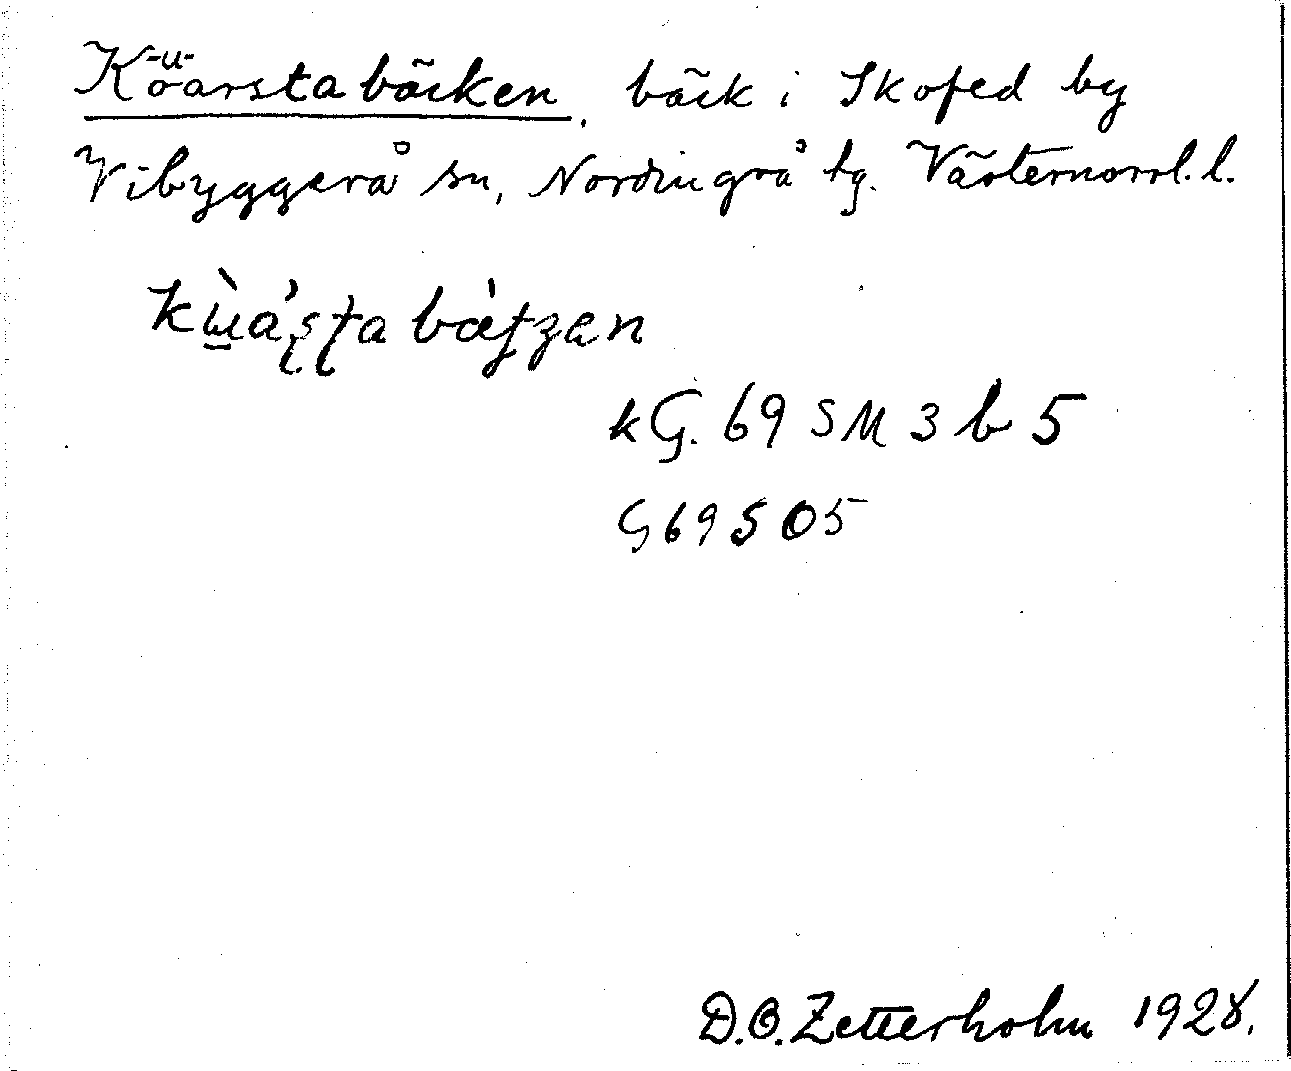 Köarstabäcken, bäck i Skofed by
-u-
Vibyggerå sn, Nordingrå tg. Västernorrl. l.
kɯ̀ásta bàtzen
kG. 69 SM 3 b 5
G 69 S 05
D.O. Zetterholm 1928.